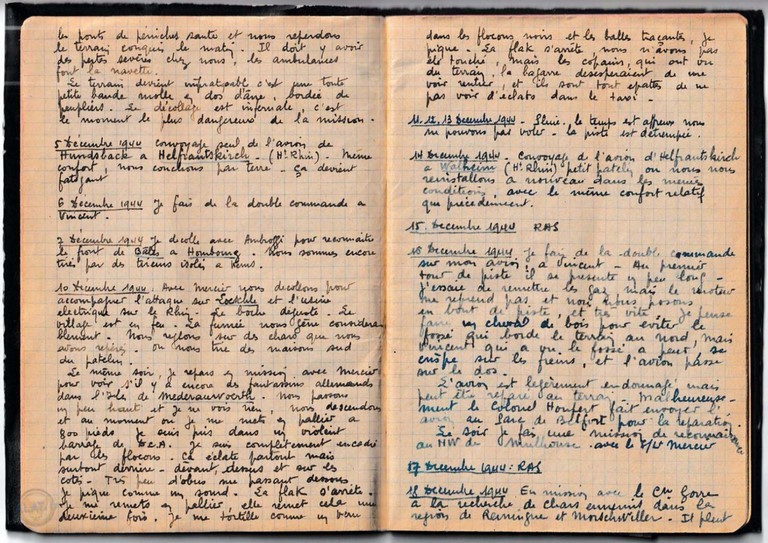 les ponts de péniches saute et nous reperdons
le terrain conquis le matin. Il doit y avoir
des pertes sévères chez nous, les ambulances
font la navette.
Le terrain devient impraticable c'est une toute
petite bande molle à dos d'âne, bordée de
peupliers. Le décollage est infernale, c'est
le moment le plus dangereux de la mission.
5 Décembre 1944 convoyage seul de l'avion de
Hundsback a Helfrantskirch - (Ht Rhin). Même
confort, nous couchons par terre - ça devient
fatigant
6 Décembre 1944 Je fais de la double commande a
Vincent.
7 Décembre 1944 Je décolle avec Ambroggi pour reconnaitre
le front de Bâles a Hombourg. Nous sommes encore
tirés par des tireurs isolés a Kembs.
10 Décembre 1944. Avec Mercier nous décollons pour
accompagner l'attaque sur et l'usine
électrique sur le Rhin. Le boche déguste. Le
village est en feu. La fumée nous gêne considéra
blement. Nous réglons sur des chars que nous
avons repérés. On nous tire des maisons sud
du patelin.
Le même soir, je repars en mission avec Mercier
pour voir s'il y a encore des fantassins allemands
dans l'Isle de . Nous passons
un peu haut et je ne vois rien, nous descendons
et au moment ou je me mets en pallier a
800 pieds je suis pris dans un violent
barrage de D.C.A. Je suis complètement encadré
par les flocons. Ca éclate partout mais
surtout derrière - devant, dessus et sur les
cotés - Très peu d'obus me passant dessous
je pique comme un sourd - La flak s'arrête.
Je me remets en pallier elle remet cela une
deuxième fois. Je me tortille comme un beau
dans les flocons noirs et les balles traçantes, je
pique - La flak s'arrête, nous n'avons pas
été touché, mais les copains, qui ont vu
du terrain, la bagarre désespéraient de me
voir rentrer, et ils sont tout épatés de ne
pas voir d'éclats dans le taxi -
11. 12. 13 Décembre 1944 - Pluie, le temps est affreux nous
ne pouvons pas voler - la piste est détrempée.
14 Décembre 1944 - Convoyage de l'avion d'Helfrantskirch
a Walheim (Ht Rhin) petit patelin ou nous nous
réinstallons a nouveau dans les memes
conditions avec le même confort relatif
que précédemment.
15. Décembre 1944 RAS
16 Décembre 1944 Je fais de la double commande
sur mon avion a Vincent - Au premier
tour de piste il se présente un peu long -
j'essaie de remettre les gaz mais le moteur
ne reprend pas et nous nous posons
en bout de piste, et très vite - Je pense
faire un cheval de bois pour eviter le
fossé qui borde le terrain au nord, mais
Vincent qui a vu le fossé a peur, se
crispe sur les freins, et l'avion passe
sur le dos.
L'avion est legérement endomagé mais
peut être réparé au terrain. Malheureuse-
ment le Colonel fait envoyer l'
avion au Parc de Belfort pour la réparation.
Le soir je fais une mission de reconnaissance
au NW de Mulhouse avec le S/Lt Mercier
17 Décembre 1944 : RAS
18 Décembre 1944 En mission avec le Cne Gorre
à la recherche de chars ennemis dans la
région de Reiningue et Morschwiller - Il pleut